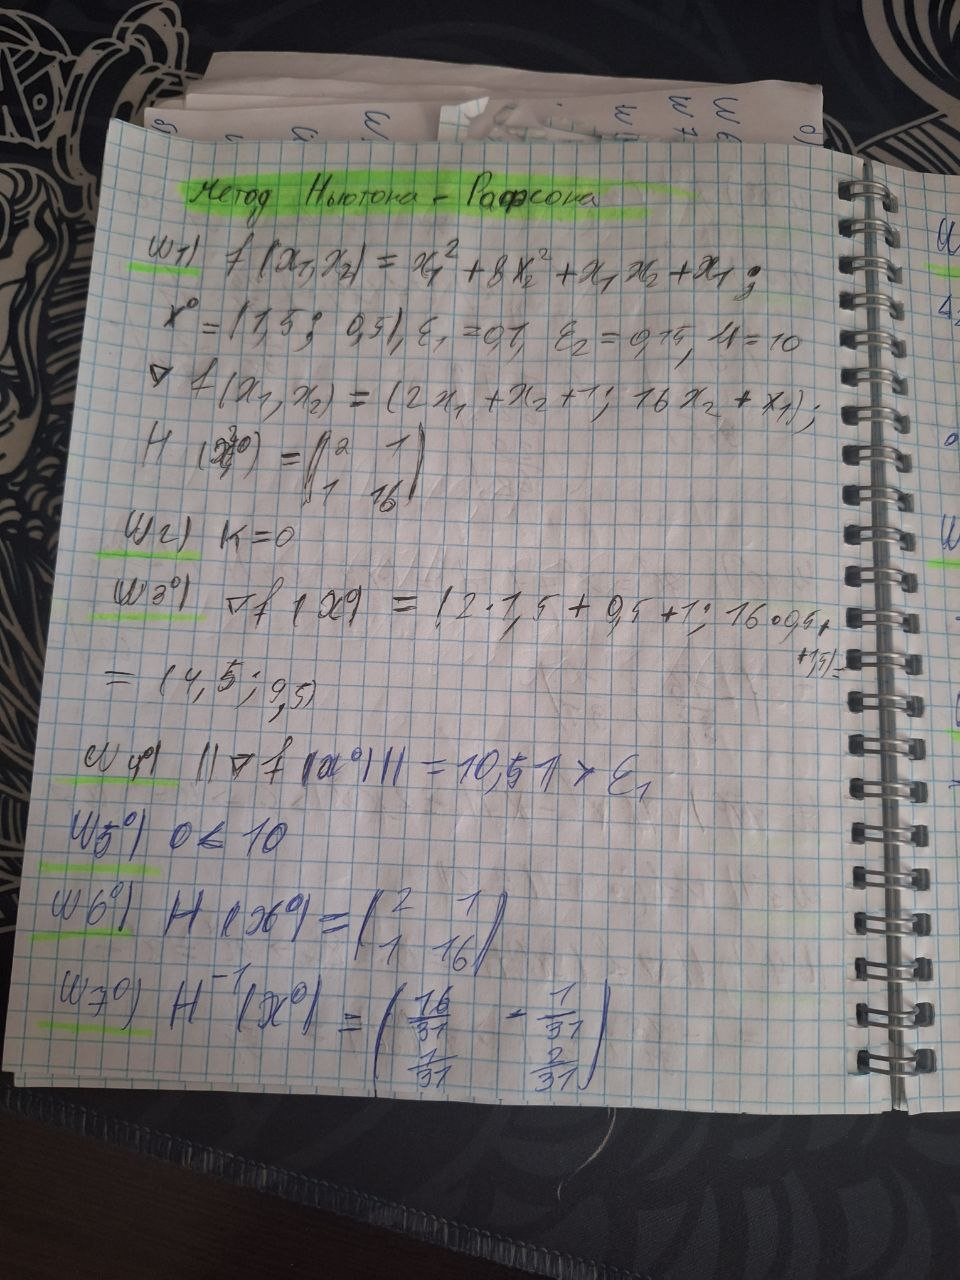 Метод Ньютона - Рафсона
ш1) f(x₁,x₂) = x₁² + 8x₂² + x₁x₂ + x₁;
x⁰ = (1,5; 0,5), ε₁ = 0,1, ε₂ = 0,15, M = 10
∇f(x₁,x₂) = (2x₁ + x₂ + 1; 16x₂ + x₁);
H (x⁰) = (2 1
1 16)
ш2) K = 0
ш3⁰) ∇f(x⁰) = (2·1,5 + 0,5 + 1; 16·0,5+
+1,5) =
= (4,5; 9,5)
ш4⁰) ||∇f(x⁰)|| = 10,51 > ε₁
ш5⁰) 0 < 10
ш6⁰) H(x⁰) = (2 1
1 16)
ш7⁰) H⁻¹(x⁰) = (16/31 - 1/31
1/31 2/31)